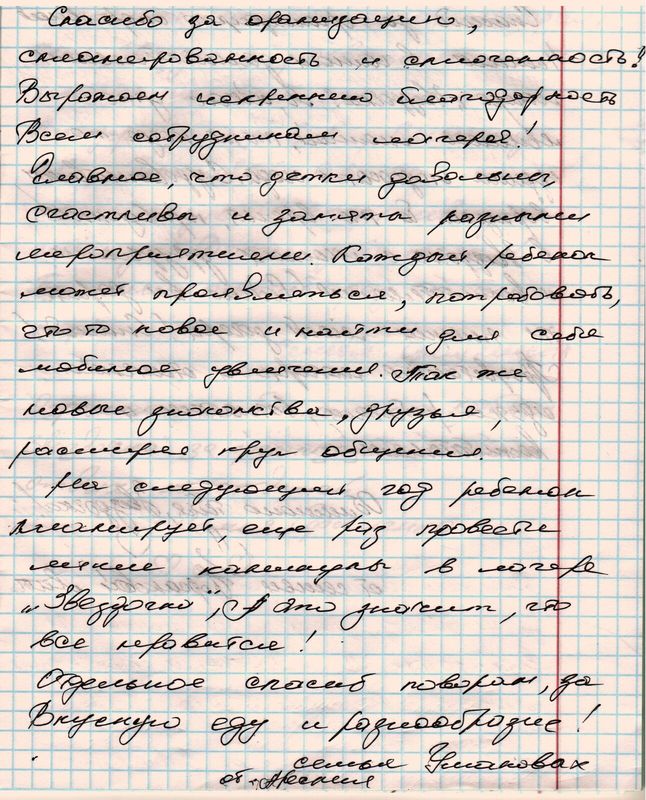 Спасибо за организацию,
спланированность и сплоченность!
Выражаем искреннюю благодарность
Всем сотрудникам лагеря!
Главное, что детки довольны,
счастливы и заняты разными
мероприятиями. Каждый ребенок
может проявляться, попробовать,
что то новое и найти для себя
любимое увлечение. Так же
новые знакомства, друзья,
расширяя круг общения.
На следующий год ребенок
планирует, еще раз провести
летние каникулы в лагере
„Звездочка", А это значит, что
все нравится!
Отдельное спасиб поварам, за
Вкусную еду и разнообразие!
семья
от